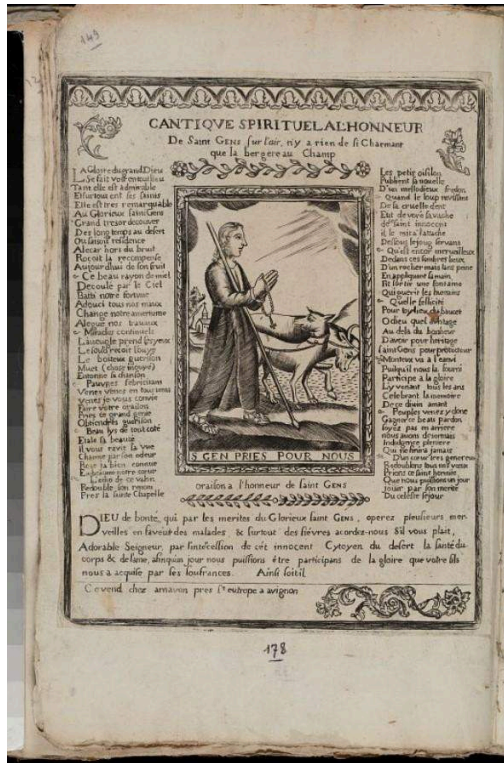 149
CANTIQVE SPIRITUEL A L'HONNEUR
De Saint GENS sur l'air, n'y a rien de si Charmant
que la bergere au Champ
LA Gloire du grand Dieu
Se fait voir en tous lieu
Tant elle est admirable
Et surtout en ses saints
Elle est tres remarquable
Au Glorieux saint Gens
Grand tresor decouver
Des long temps au desert
Ou faisoit residence
Alecar hors du bruit
Recoit la recompense
Aujourdhui de son fruit
Ce beau rayon de miel
Decoule par le Ciel
Batit notre fortune
Adouci tous nos maux
Change notre amertume
Alegue nos travaux
Miracles continuels
L'aveugle prend ses yeux
Le sourd recoit l'ouye
Le boiteux guerison
Muet (chose inouye)
Entonne sa chanson
Pauvres febricitans
Venes venes en tous tems
Venes je vous convie
Faire votre oraison
Pries ce grand genie
Obtiendrés guerison
Beau lys de tout coté
Etale sa beauté
Il vous ravit la vue
Charme par son odeur
notre cœur
L'echo de ce valon
Redouble son rayon
Prez la sainte Chapelle
Les petis oisillon
Publient sa nouvelle
D'un melodieux fredon
Quand le loup ravissant
De sa cruelle dent
Eut devoré sa vache
de saint innocent
il le mit a l'attache
Dessous le joug servant
Qu'est encor merveilleux
Dedans ces sombres lieux
D'un rocher mais sans pene
En appliquant sa main
Fit sortir une fontaine
Qui guerit les humains
Quelle felicité
Pour toy lieu du bausset
O dieu quel avantage
Au dela du bonheur
D'avoir pour heritage
Saint Gens pour protecteur
Monteux va a l'envi
Puisqu'il nous la fourni
Participe à la gloire
L'y venant tous les ans
Celebrant la memoire
De ce divin amant
Peuples venez y donc
Gagner ce beau pardon
soyez pas en arriere
nous avons desormais
Indulgence pleniere
Qui ne finira jamais
D'un cœur tres genereux
Redoublons tous nos vœux
Prions ce saint homme
Que nous puissions un jour
jouir par son merite
Du celeste sejour
S GEN PRIES POUR NOUS
oraison a l'honneur de saint GENS
DIEU de bonté, qui par les merites du Glorieux saint GENS, operez plusieurs mer-
veilles en faveur des malades & surtout des fiévres acordez-nous S'il vous plait,
Adorable Seigneur, par l'intecession de cét innocent Cytoyen du desert la santé du
corps & de l'ame, afin qu'un jour nous puissions étre participans de la gloire que votre fils
nous a acquise par ses soufrances. Ainsi soitil
Ce vend chez arnavon pres st eutrope a avignon
178